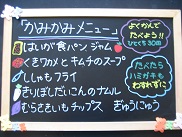 かみかみメニュー
はいが食パン ジャム
くきワカメとキムチのスープ
ししゃもフライ
きりぼしだいこんのナムル
むらさきいもチップス ぎゅうにゅう
よくかんで
たべよう!!
ひとくち30回
たべたら
ハミガキも
わすれずに